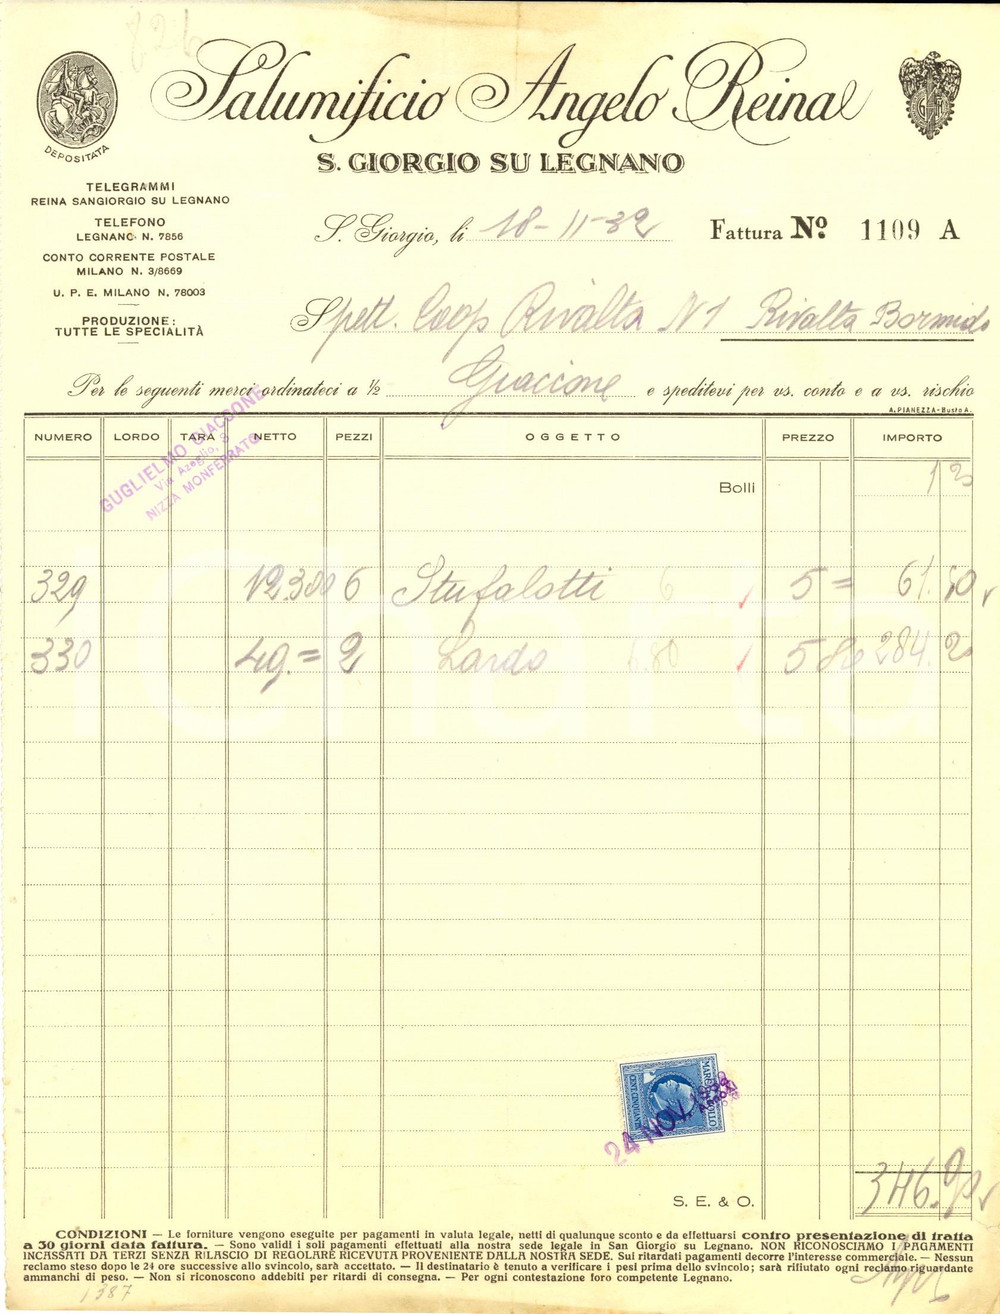 826
Salumificio Angelo Reina
S. GIORGIO SU LEGNANO
DEPOSITATA
TELEGRAMMI
REINA SANGIORGIO SU LEGNANO
TELEFONO
LEGNANO N. 7856
CONTO CORRENTE POSTALE
MILANO N. 3/8669
U. P. E. MILANO N. 78003
PRODUZIONE:
TUTTE LE SPECIALITÀ
S. Giorgio, li 18-11-32 Fattura No. 1109 A
Spett. Coop Rivalta N 1 Rivalta Bormida
Per le seguenti merci ordinateci a ½ Giaccone e speditevi per vs. conto e a vs. rischio
A. PIANEZZA - Busto A.
GUGLIELMO GIACCONE
Via Azeglio, 9
NIZZA MONFERRATO
NUMERO LORDO TARA NETTO PEZZI OGGETTO PREZZO IMPORTO
Bolli 1 20
329 12.300 6 Stufalotti 6 5= 61.50
330 49.= 2 Lardo 6.80 5 80 284.20
MARCA DA BOLLO
CENT. CINQUANTA
24 NOV. 1932
S. E. & O. 346.90
CONDIZIONI — Le forniture vengono eseguite per pagamenti in valuta legale, netti di qualunque sconto e da effettuarsi contro presentazione di tratta
a 30 giorni data fattura. — Sono validi i soli pagamenti effettuati alla nostra sede legale in San Giorgio su Legnano. NON RICONOSCIAMO I PAGAMENTI
INCASSATI DA TERZI SENZA RILASCIO DI REGOLARE RICEVUTA PROVENIENTE DALLA NOSTRA SEDE. Sui ritardati pagamenti decorre l'interesse commerciale. — Nessun
reclamo steso dopo le 24 ore successive allo svincolo, sarà accettato. — Il destinatario è tenuto a verificare i pesi prima dello svincolo; sarà rifiutato ogni reclamo riguardante
ammanchi di peso. — Non si riconoscono addebiti per ritardi di consegna. — Per ogni contestazione foro competente Legnano.
1387
iCharta